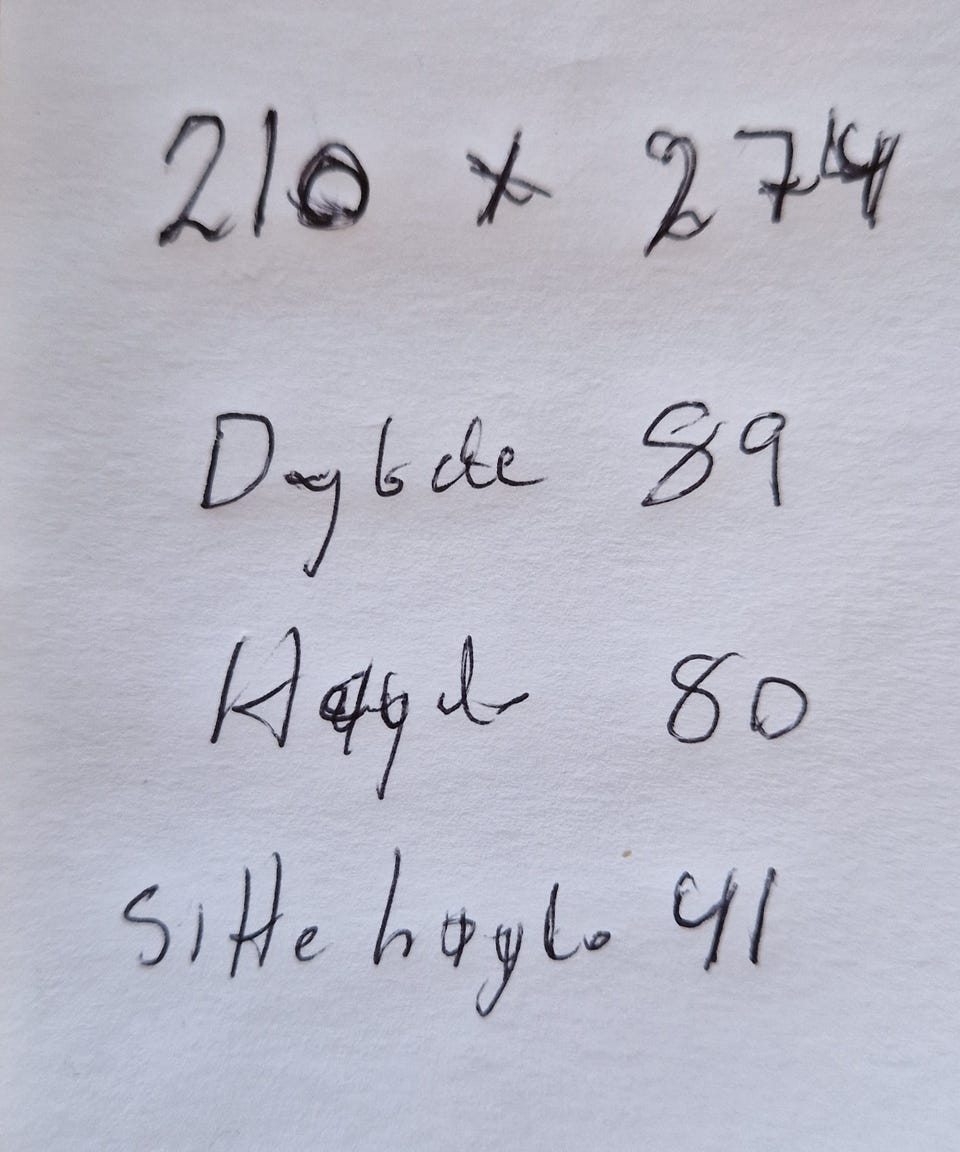 210 x 274
Dybde 89
Høyde 80
Sitte høyde 41